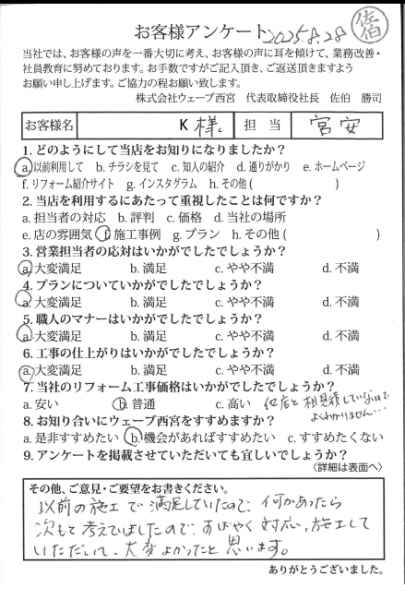 お客様アンケート 2025.8.28 佐伯
当社では、お客様の声を一番大切に考え、お客様の声に耳を傾けて、業務改善・
社員教育に努めております。お手数ですがご記入頂き、ご返送頂きますよう
お願い申し上げます。ご協力の程お願い致します。
株式会社ウェーブ西宮 代表取締役社長 佐伯 勝司
お客様名 K 様 担当 宮安
1. どのようにして当店をお知りになりましたか?
a. 以前利用して b. チラシを見て c. 知人の紹介 d. 通りがかり e. ホームページ
f. リフォーム紹介サイト g. インスタグラム h. その他( )
2. 当店を利用するにあたって重視したことは何ですか?
a. 担当者の対応 b. 評判 c. 価格 d. 当社の場所
e. 店の雰囲気 f. 施工事例 g. プラン h. その他( )
3. 営業担当者の応対はいかがでしたでしょうか?
a. 大変満足 b. 満足 c. やや不満 d. 不満
4. プランについていかがでしたでしょうか?
a. 大変満足 b. 満足 c. やや不満 d. 不満
5. 職人のマナーはいかがでしたでしょうか?
a. 大変満足 b. 満足 c. やや不満 d. 不満
6. 工事の仕上がりはいかがでしたでしょうか?
a. 大変満足 b. 満足 c. やや不満 d. 不満
7. 当社のリフォーム工事価格はいかがでしたでしょうか?
a. 安い b. 普通 c. 高い 他店と相見積していないので
よくわかりません…
8. お知り合いにウェーブ西宮をすすめますか?
a. 是非すすめたい b. 機会があればすすめたい c. すすめたくない
9. アンケートを掲載させていただいても宜しいでしょうか?
<詳細は表面へ>
その他、ご意見・ご要望をお書きください。
以前の施工で満足していたので、何かあったら
次もと考えていましたので、すばやく対応、施工して
いただいて、大変よかったと思います。
ありがとうございました。